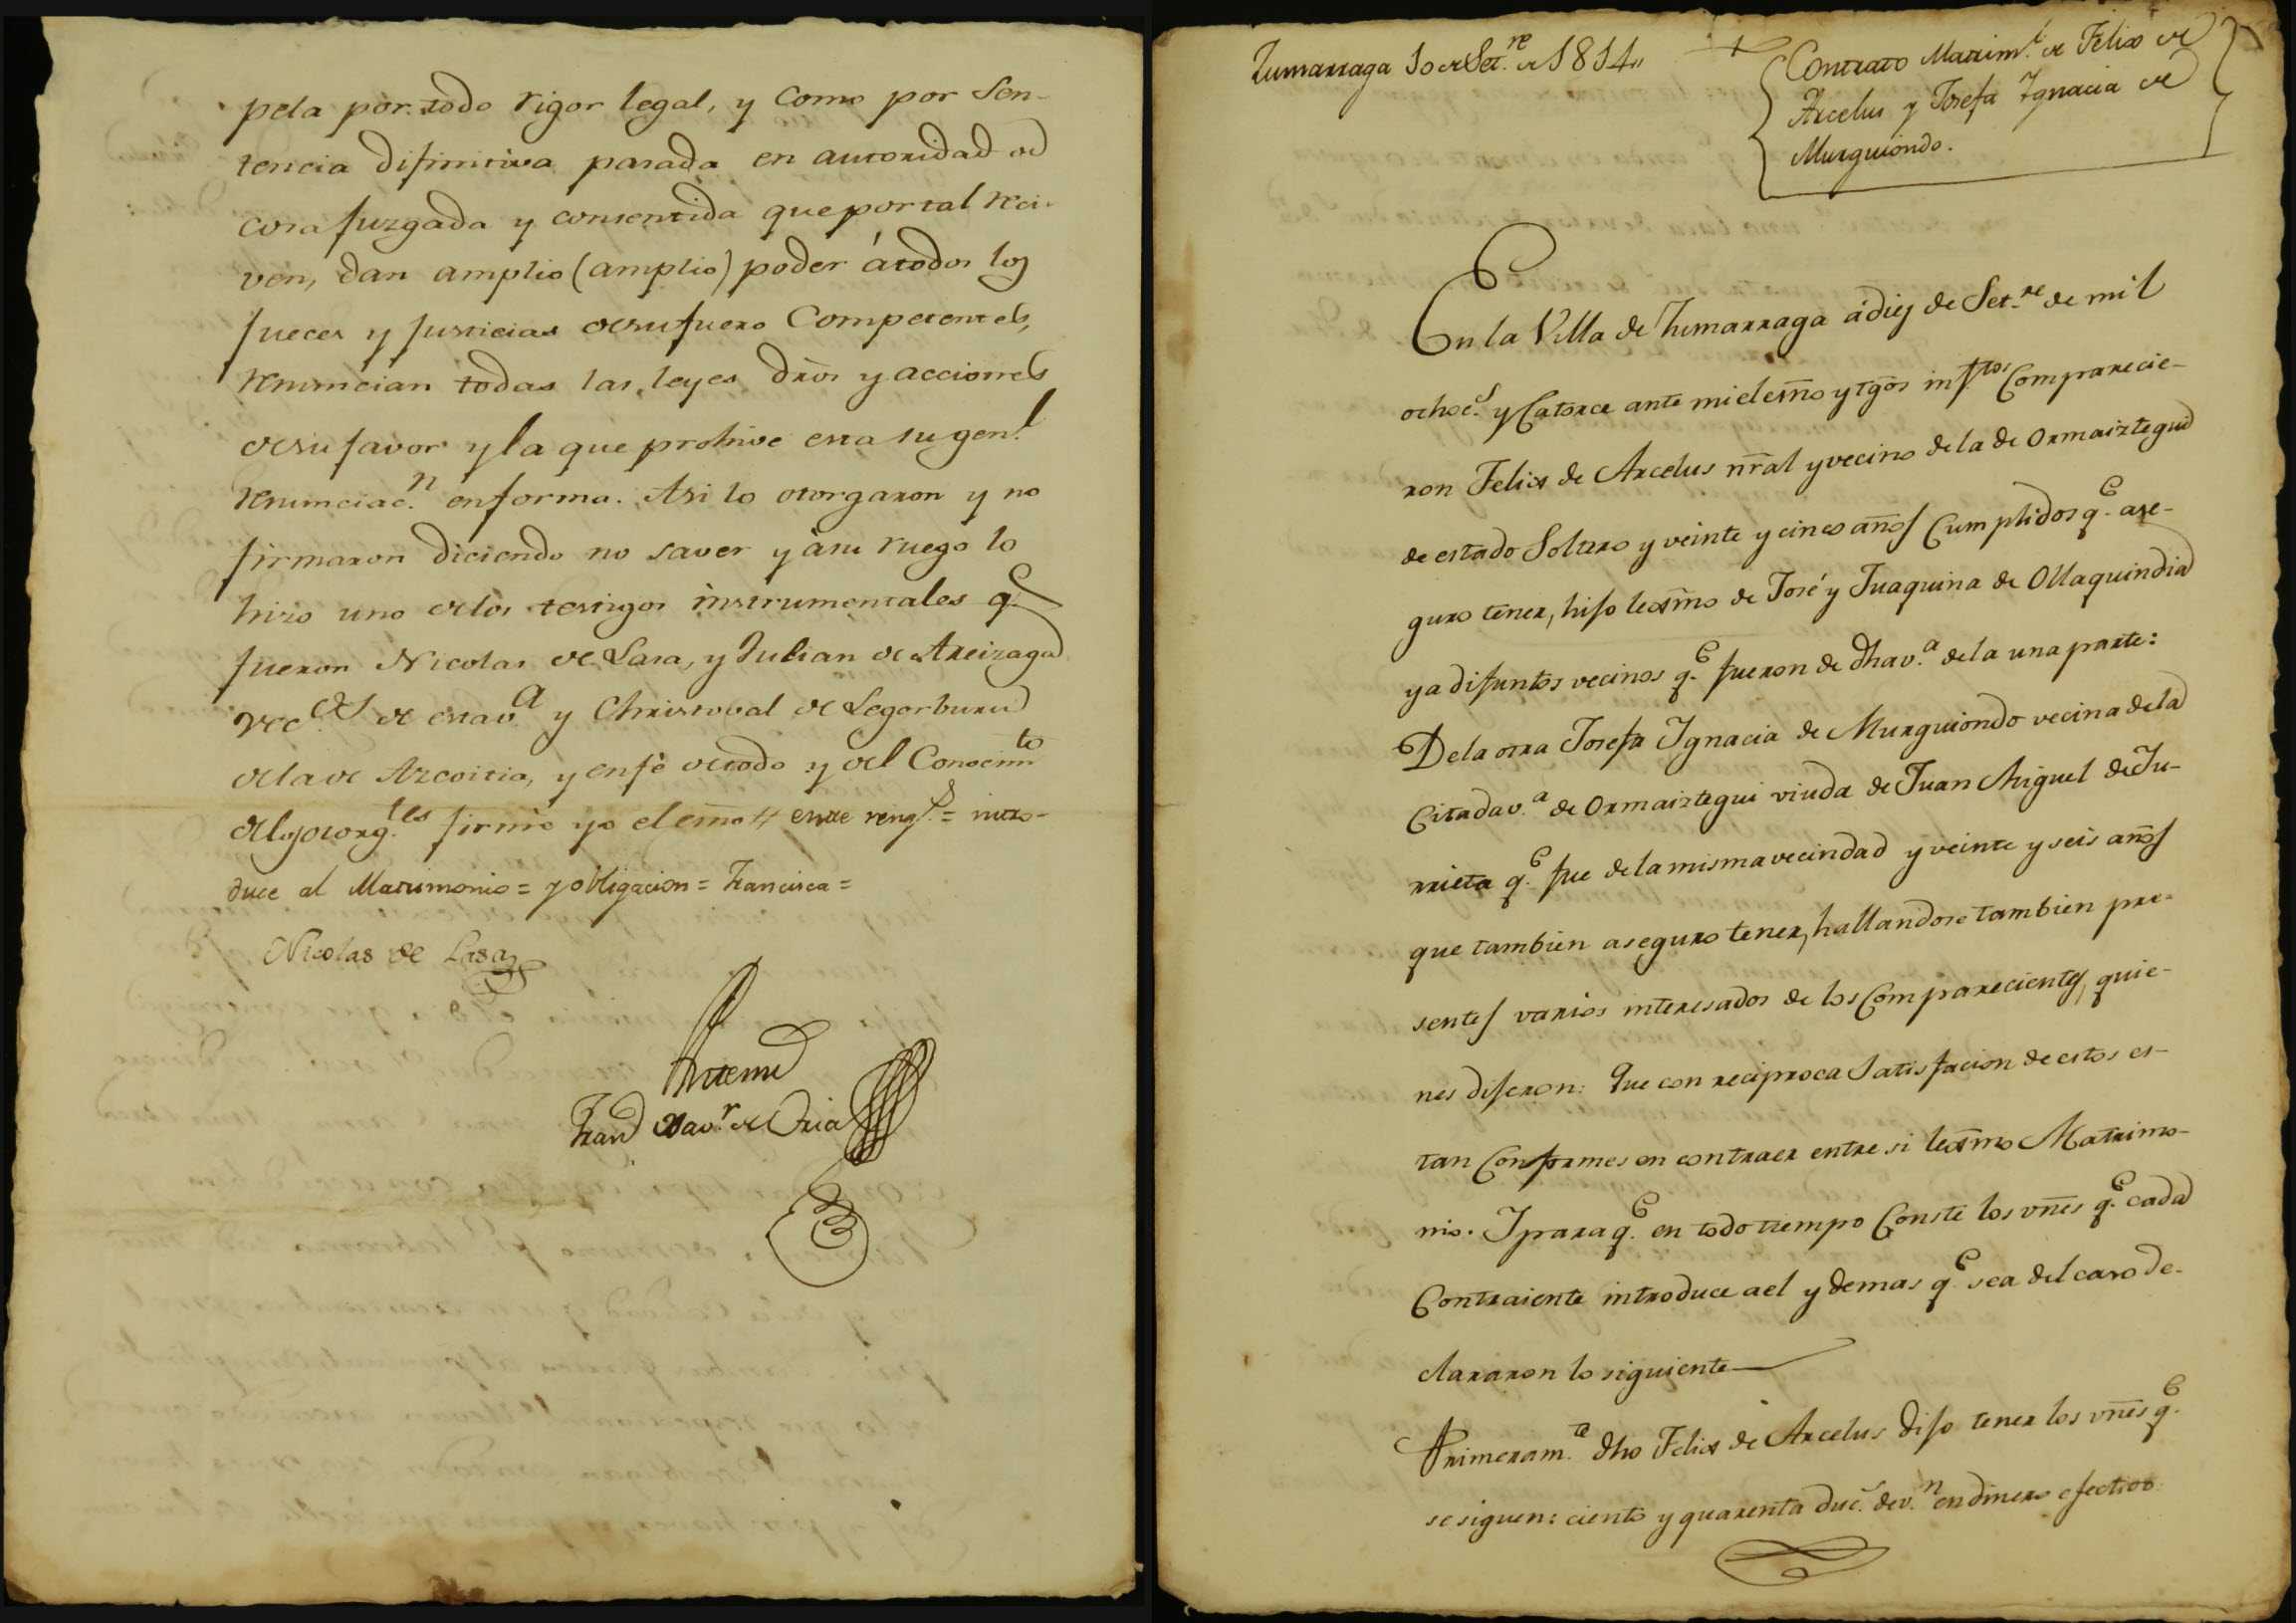 pela por todo rigor legal, y como por Sen-
tencia difinitiva pasada en autoridad de
cosa juzgada y consentida que por tal reci-
ven, dan amplio (amplio) poder á todos los
jueces y justicias de su fuero Competentes,
renuncian todas las leyes dros y acciones
de su favor y la que prohive esta su gen.l
renunciac.n en forma. Asi lo otorgaron y no
firmaron diciendo no saver y à su ruego lo
hizo uno de los testigos instrumentales q.e
fueron Nicolas de Lasa, y Julian de Areizaga
vec.os de esta v.a y Christoval de Legorburu
de la de Azcoitia, y en fé de todo y del Conocim.to
de los otorg.tes firmé yo el esno // entre reng.s = intro-
duce al Matrimonio = y obligacion = Francisca =
Nicolas de Lasa
Antemi
Fran.co Xav.r de Oria
Zumarraga 10 de Set.re de 1814,,
Contrato Matrim.l de Felix de
Arcelus y Josefa Ignacia de
Murguiondo.
En la Villa de Zumarraga á diez de Set.re de mil
ochoc.s y Catorce ante mi el esno y tgos inf.tos Comparecie-
ron Felix de Arcelus nral y vecino de la de Ormaiztegui
de estado Soltero y veinte y cinco años Cumplidos q.e ase-
guro tener, hijo lexmo de José y Juaquina de Ollaquindia
ya difuntos vecinos q.e fueron de dha v.a de la una parte:
De la otra Josefa Ignacia de Murguiondo vecina de la
Citada v.a de Ormaiztegui viuda de Juan Miguel de Iu-
rrieta q.e fue de la misma vecindad y veinte y seis años
que tambien aseguro tener, hallandose tambien pre-
sentes varios interesados de los Comparecientes, quie-
nes dijeron: Que con reciproca Satisfacion de estos es-
tan Conformes en contraer entre si lexmo Matrimo-
nio. I para q.e en todo tiempo Conste los vnes q.e cada
Contraiente introduce a el y demas q.e sea del caso de-
clararon lo siguiente
Primeram.te dho Felix de Arcelus dijo tener los vnes q.e
se siguen: ciento y quarenta duc.s de v.n en dinero efectivo